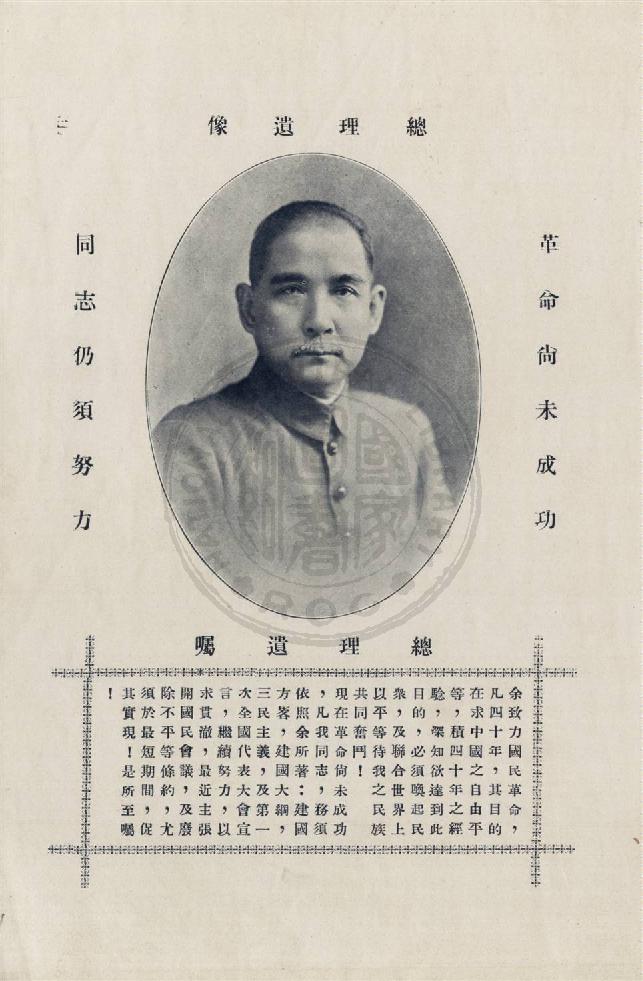 總理遺像
革命尚未成功
同志仍須努力
總理遺囑
余致力國民革命，
凡四十年，其目的
在求中國之自由平
等，積四十年之經
驗，深知欲達到此
目的，必須喚起民
衆，及聯合世界上
以平等待我之民族
共同奮鬥！
現在革命尚未成功
，凡我同志，務須
依照余所著：建國
方畧，建國大綱，
三民主義，及第一
次全國代表大會宣
言，繼續努力，以
求貫澈，最近主張
開國民會議，及廢
除不平等條約，尤
須於最短期間，促
其實現！是所至囑
！
國家圖書